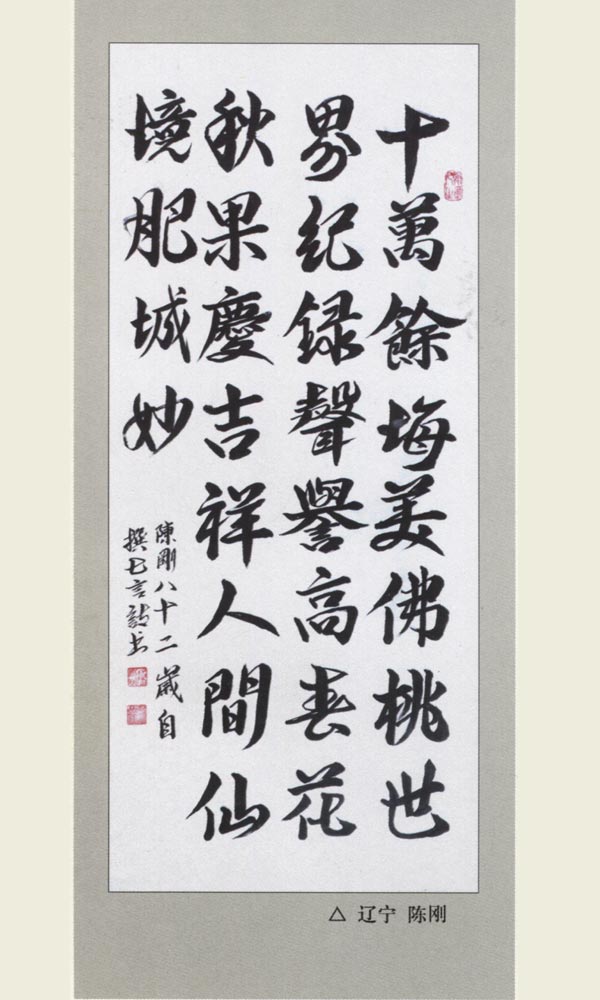 十萬餘塢美佛桃世
界紀録聲譽高春花
秋果慶吉祥人間仙
境肥城妙
陳剛八十二歲自
撰七言詩书
△ 辽宁 陈刚